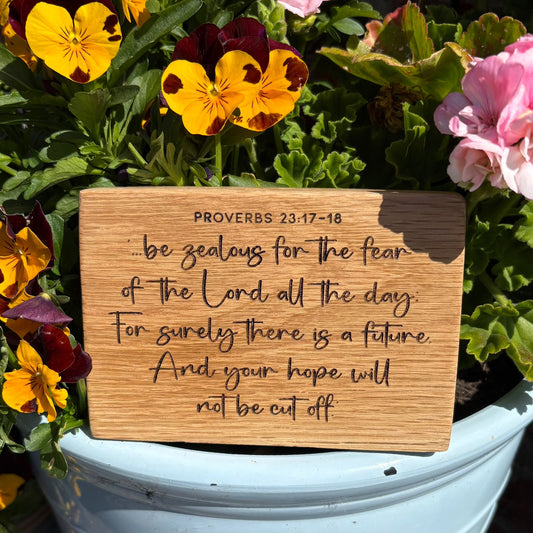 PROVERBS 23:17-18
'...be zealous for the fear
of the Lord all the day;
For surely there is a future,
And your hope will
not be cut off.'